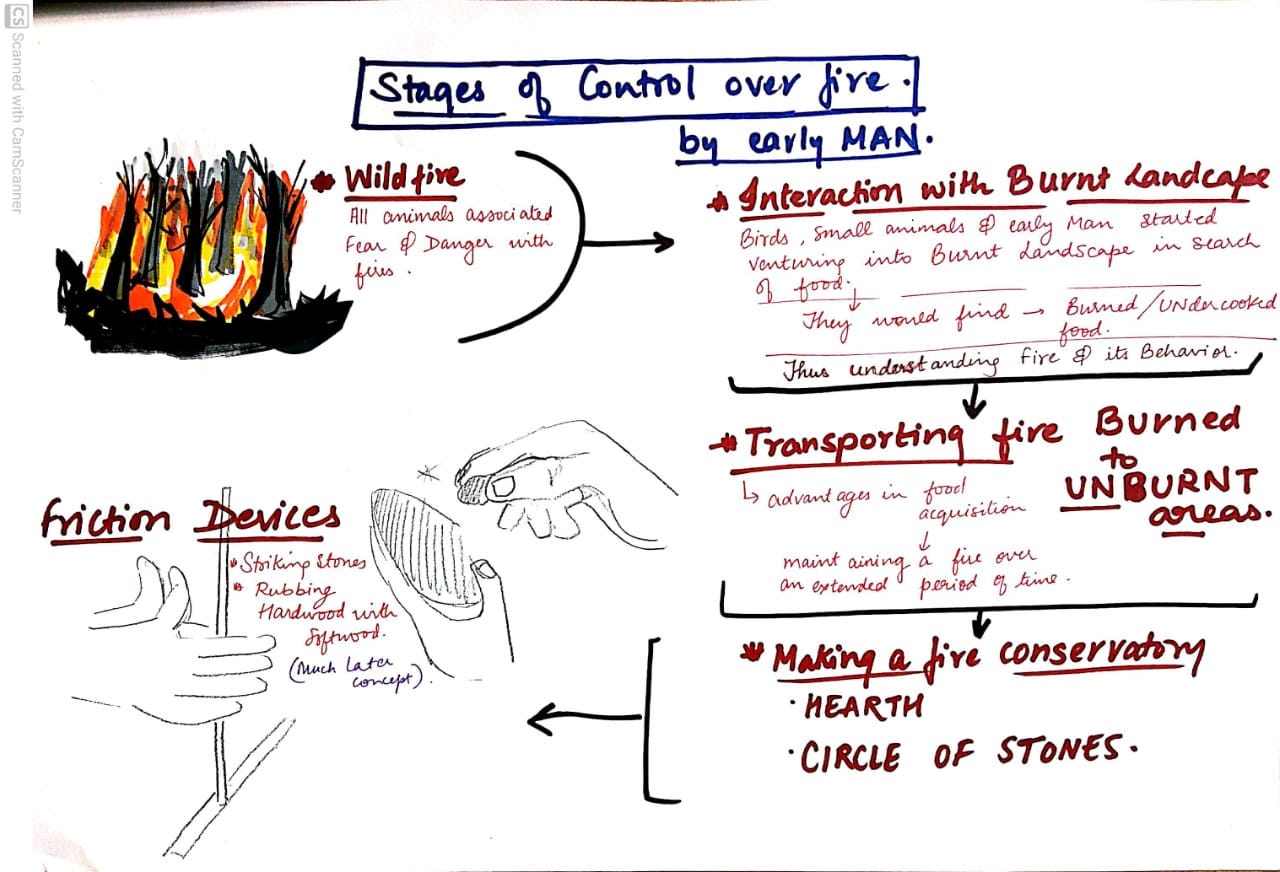 Stages of Control over fire.
by early MAN.
* Wildfire
All animals associated
Fear & Danger with
fires.
* Interaction with Burnt Landscape
Birds, small animals & early Man started
venturing into Burnt Landscape in search
of food.
They would find → Burned/UNdercooked
food.
Thus understanding Fire & its Behavior.
* Transporting fire Burned
to
UNBURNT
areas.
↳ advantages in food
acquisition
↓
maintaining a fire over
an extended period of time.
* Making a fire conservatory
· HEARTH
· CIRCLE OF STONES.
friction Devices
* Striking Stones
* Rubbing
Hardwood with
Softwood.
(Much Later
concept).
CS Scanned with CamScanner